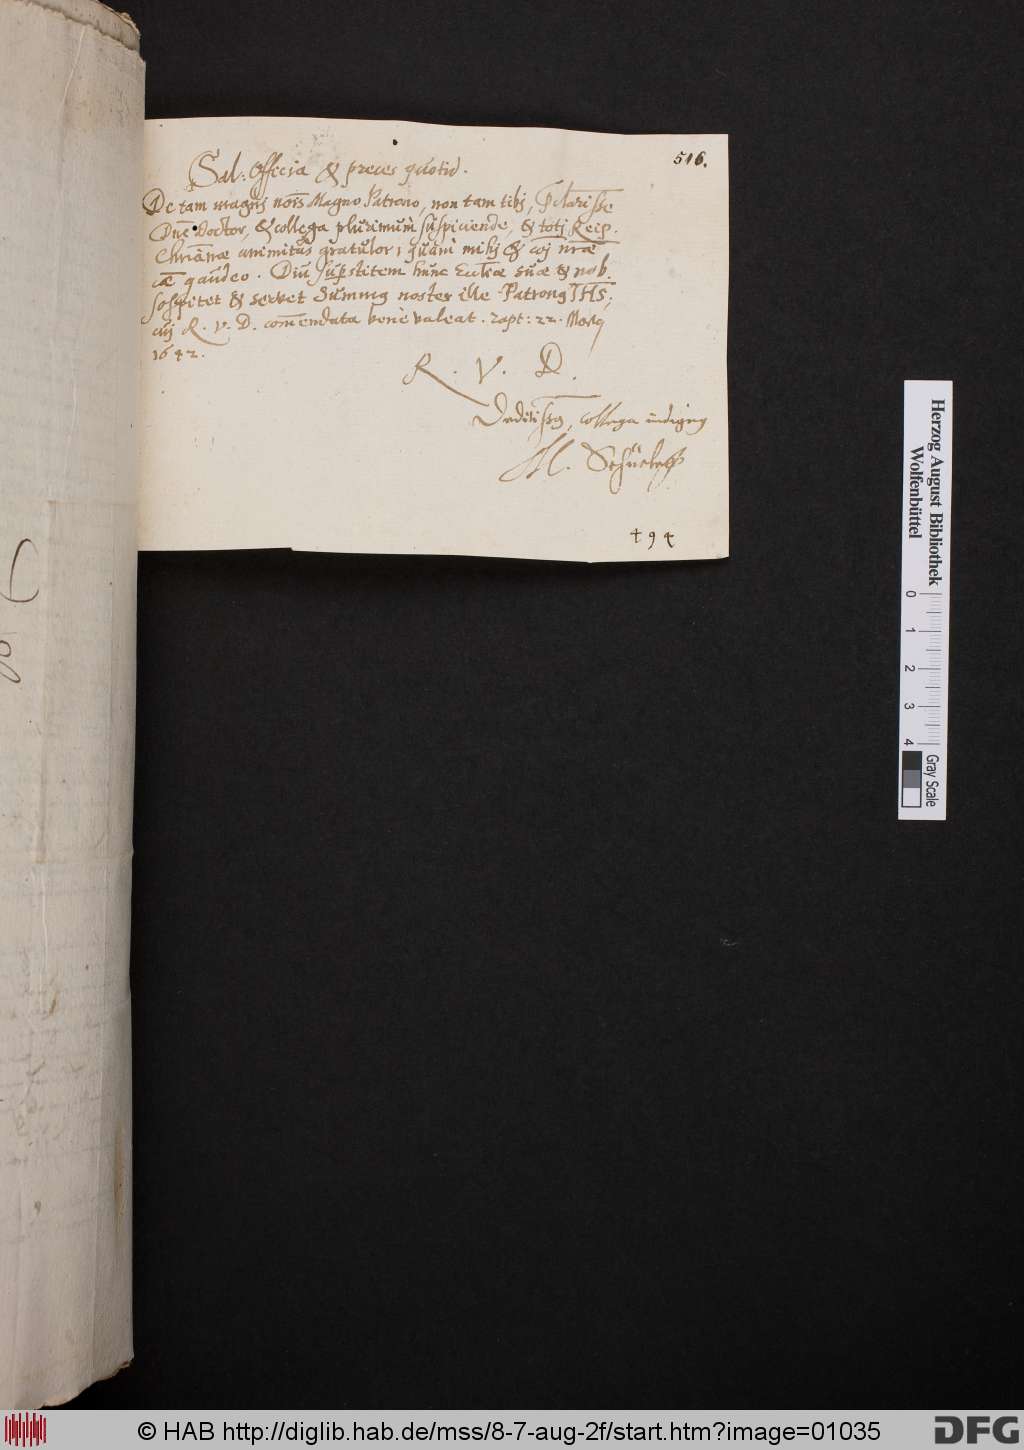 516.
Sal: Officia & preces quotid.
De tam magnj nois Magno Patrono, non tam tibj,
Dne Doctor, & collega plurimum suspiciende, & totj Reip.
Chrianae animitus gratulor; quam mihj & nrae
gaudeo. Diu superstitem hunc Eccliae suae & nob.
sospitet & servet Summ9 noster ille Patron9 IHS,
cuj R. V. D. comendata bene valeat. 22.
1642.
R. V. D.
collega indign9
M.
494
Herzog August Bibliothek
Wolfenbüttel
0 1 2 3 4
Gray Scale
© HAB http://diglib.hab.de/mss/8-7-aug-2f/start.htm?image=01035
DFG